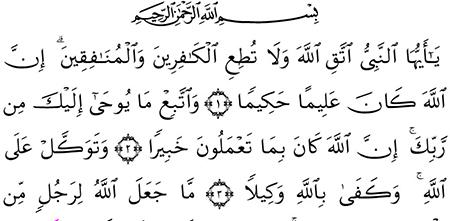 بِسْمِ ٱللَّهِ ٱلرَّحْمَٰنِ ٱلرَّحِيمِ
يَـٰٓأَيُّهَا ٱلنَّبِىُّ ٱتَّقِ ٱللَّهَ وَلَا تُطِعِ ٱلْكَـٰفِرِينَ وَٱلْمُنَـٰفِقِينَ ۗ إِنَّ
ٱللَّهَ كَانَ عَلِيمًا حَكِيمًا ﴿١﴾ وَٱتَّبِعْ مَا يُوحَىٰٓ إِلَيْكَ مِن
رَّبِّكَ ۚ إِنَّ ٱللَّهَ كَانَ بِمَا تَعْمَلُونَ خَبِيرًا ﴿٢﴾ وَتَوَكَّلْ عَلَى
ٱللَّهِ ۚ وَكَفَىٰ بِٱللَّهِ وَكِيلًا ﴿٣﴾ مَّا جَعَلَ ٱللَّهُ لِرَجُلٍ مِّن